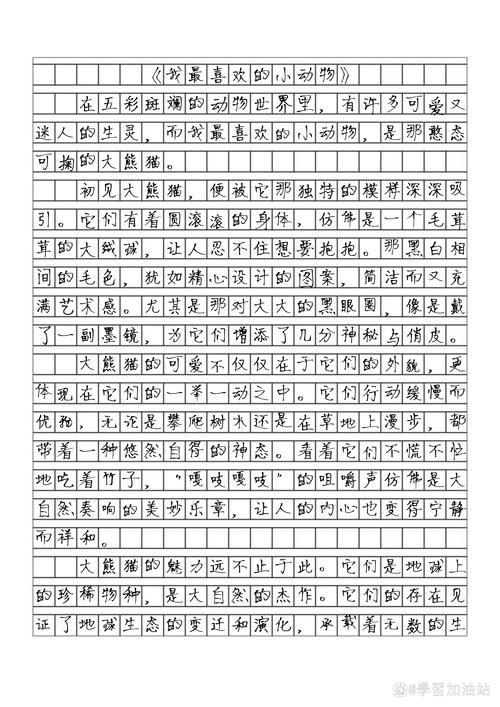 《我最喜欢的小动物》
在五彩斑斓的动物世界里，有许多可爱又
迷人的生灵，而我最喜欢的小动物，是那憨态
可掬的大熊猫。
初见大熊猫，便被它那独特的模样深深吸
引。它们有着圆滚滚的身体，仿佛是一个毛茸
茸的大绒球，让人忍不住想要抱抱。那黑白相
间的毛色，犹如精心设计的图案，简洁而又充
满艺术感。尤其是那对大大的黑眼圈，像是戴
了一副墨镜，为它们增添了几分神秘与俏皮。
大熊猫的可爱不仅仅在于它们的外貌，更
体现在它们的一举一动之中。它们行动缓慢而
优雅，无论是攀爬树木还是在草地上漫步，都
带着一种悠然自得的神态。看着它们不慌不忙
地吃着竹子，“嘎吱嘎吱”的咀嚼声仿佛是大
自然奏响的美妙乐章，让人的内心也变得宁静
而祥和。
大熊猫的魅力远不止于此。它们是地球上
的珍稀物种，是大自然的杰作。它们的存在见
证了地球生态的变迁和演化，承载着无数的生
@學習加油站